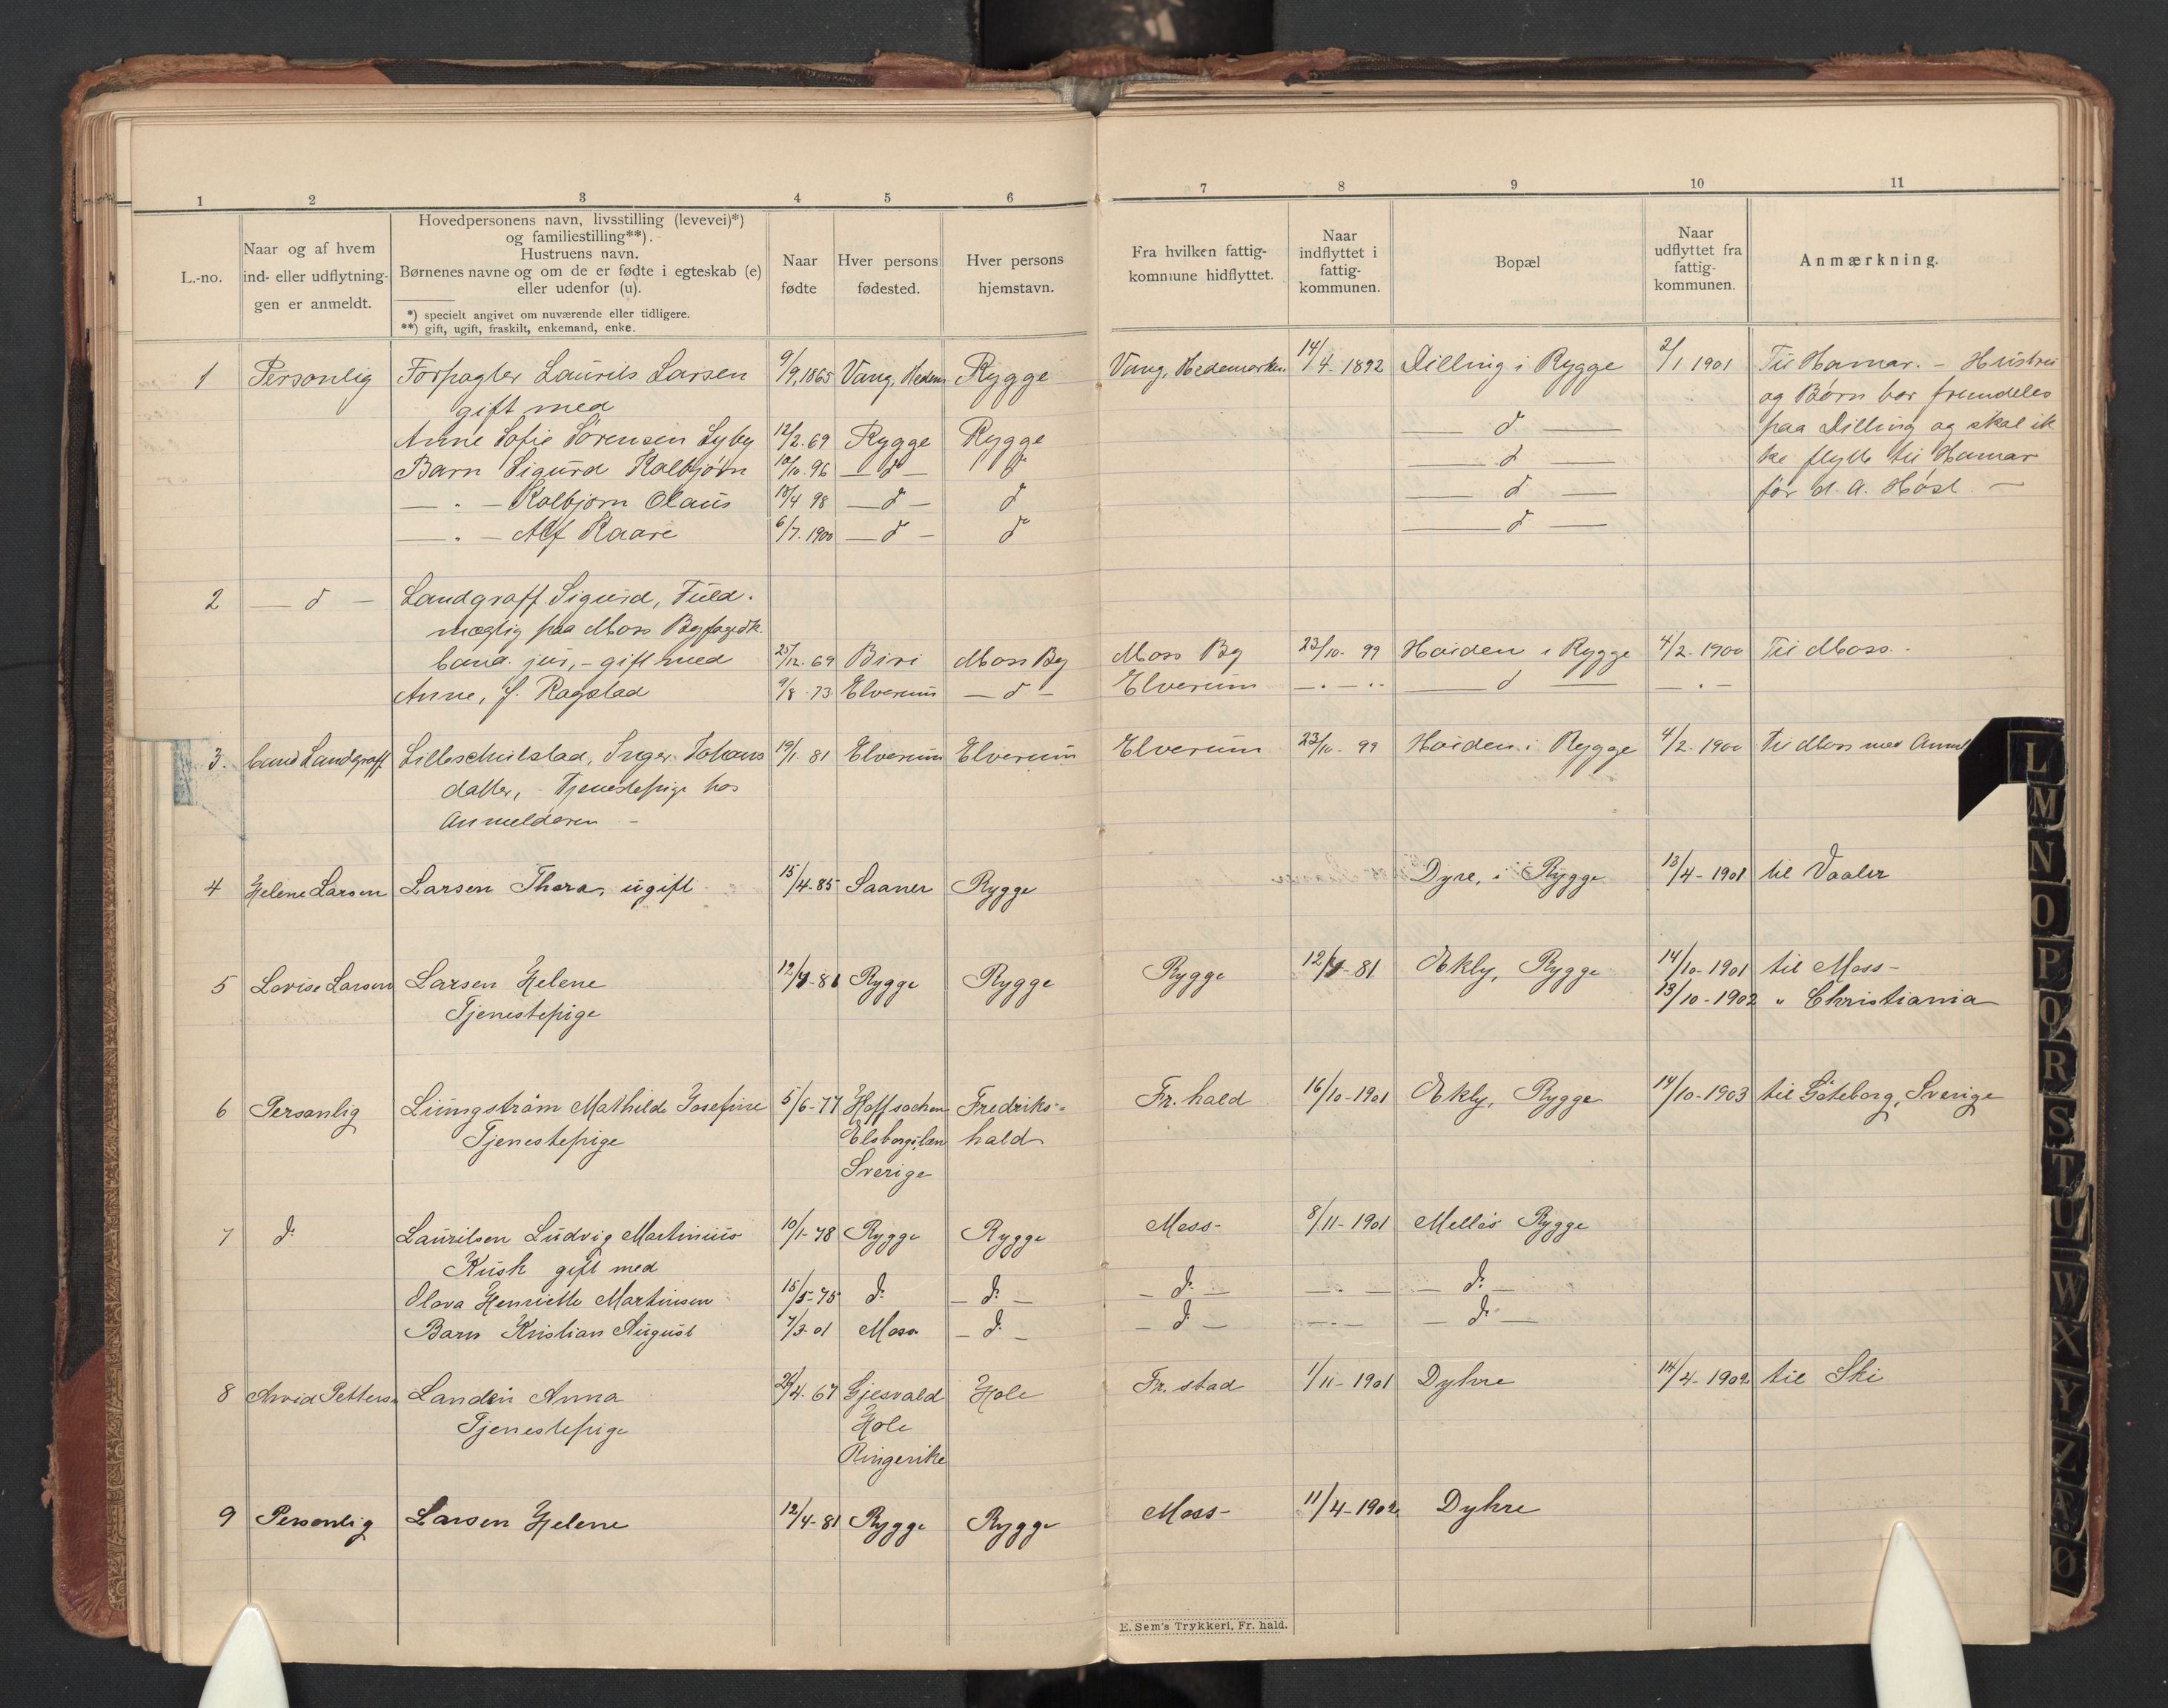 1 2 3 4 5 6 7 8 9 10 11
L.-no.
Naar og af hvem
ind- eller udflytnin-
gen er anmeldt.
Hovedpersonens navn, livsstilling (levevei)*)
og familiestilling**).
Hustruens navn.
Børnenes navne og om de er fødte i egteskab (e)
eller udenfor (u).
*) specielt angivet om nuværende eller tidligere.
**) gift, ugift, fraskilt, enkemand, enke.
Naar
fødte
Hver persons
fødested.
Hver persons
hjemstavn.
Fra hvilken fattig-
kommune hidflyttet.
Naar
indflyttet i
fattig-
kommunen.
Bopæl
Naar
udflyttet fra
fattig-
kommunen.
Anmærkning.
1 Personlig Forpagter Laurits Larsen 9/9, 1865 Vang, Hedem Rygge Vang, Hedemarken 14/4-1892 Dilling i Rygge 2/1 1901 Til Hamar. – Hustru
gift med og Børn bor fremdeles
Anne Sofie Sørensen Lyby 12/2.69 Rygge Rygge — d — paa Dilling og skal ik
Barn Sigurd Kolbjørn 10/10.96 — d — d — d — ke flytte til Hamar
— " — Kolbjørn Olaus 18/4 98 — d — d — d — før d. A. Høst. —
— " — Alf Kaare 6/7.1900 — d — d — d —
2 — d — Landgraff Sigurd, Fuld-
mægtig paa Moss Byfogedk.
cand. jur, – gift med 25/12.69 Biri Moss By Moss By 23/10-99 Høiden i Rygge 4/2-1900 Til Moss.
Anne, f. Ragstad 9/8-73 Elverum — d — Elverum — " — — d — — " —
3. Cand Landgraff Lilleskulstad, Inger Johans 19/1 81 Elverum Elverum Elverum 23/10-99 Høiden i Rygge 4/2-1900 Til Moss med Anm
datter, – Tjenestepige hos
Anmelderen –
4 Helene Larsen Larsen Thora, ugift 15/4-85 Saaner Rygge Dyre, i Rygge 13/4-1901 til Vaaler
5 Lovise Larsen Larsen Helene 12/4-81 Rygge Rygge Rygge 12/4-81 Ekly, Rygge 14/10-1901 til Moss-
Tjenestepige 13/10-1902 " Christiania
6 Personlig Liungstrøm Mathilde Josefine 5/6-77 Hoff sochen Fredriks- Fr. hald 16/10-1901 Ekly, Rygge 14/10-1903 til Göteborg, Sverige
Tjenestepige Elsborgs læn hald
Sverige
7 do Lauritsen Ludvig Martinius 10/1-78 Rygge Rygge Moss- 8/11-1901 Melløs Rygge
Kusk gift med
Olava Henriette Martinsen 15/5-75 do — do — — do — — " — — do —
Barn Kristian August 7/3-01 Moss — do — — do — — " — — do —
8 Arvid Petters Landin Anna 24/4-67 Gjesvald Hole Fr. stad 1/11-1901 Dyhre 14/4-1902 til Ski
Tjenestepige Hole
Ringerike
9 Personlig Larsen Helene 12/4-81 Rygge Rygge Moss- 11/4-1902 Dyhre
E. Sem's Trykkeri, Fr. hald.
L
M
N
O
P
Q
R
S
T
U
W
X
Y
Z
Æ
Ø